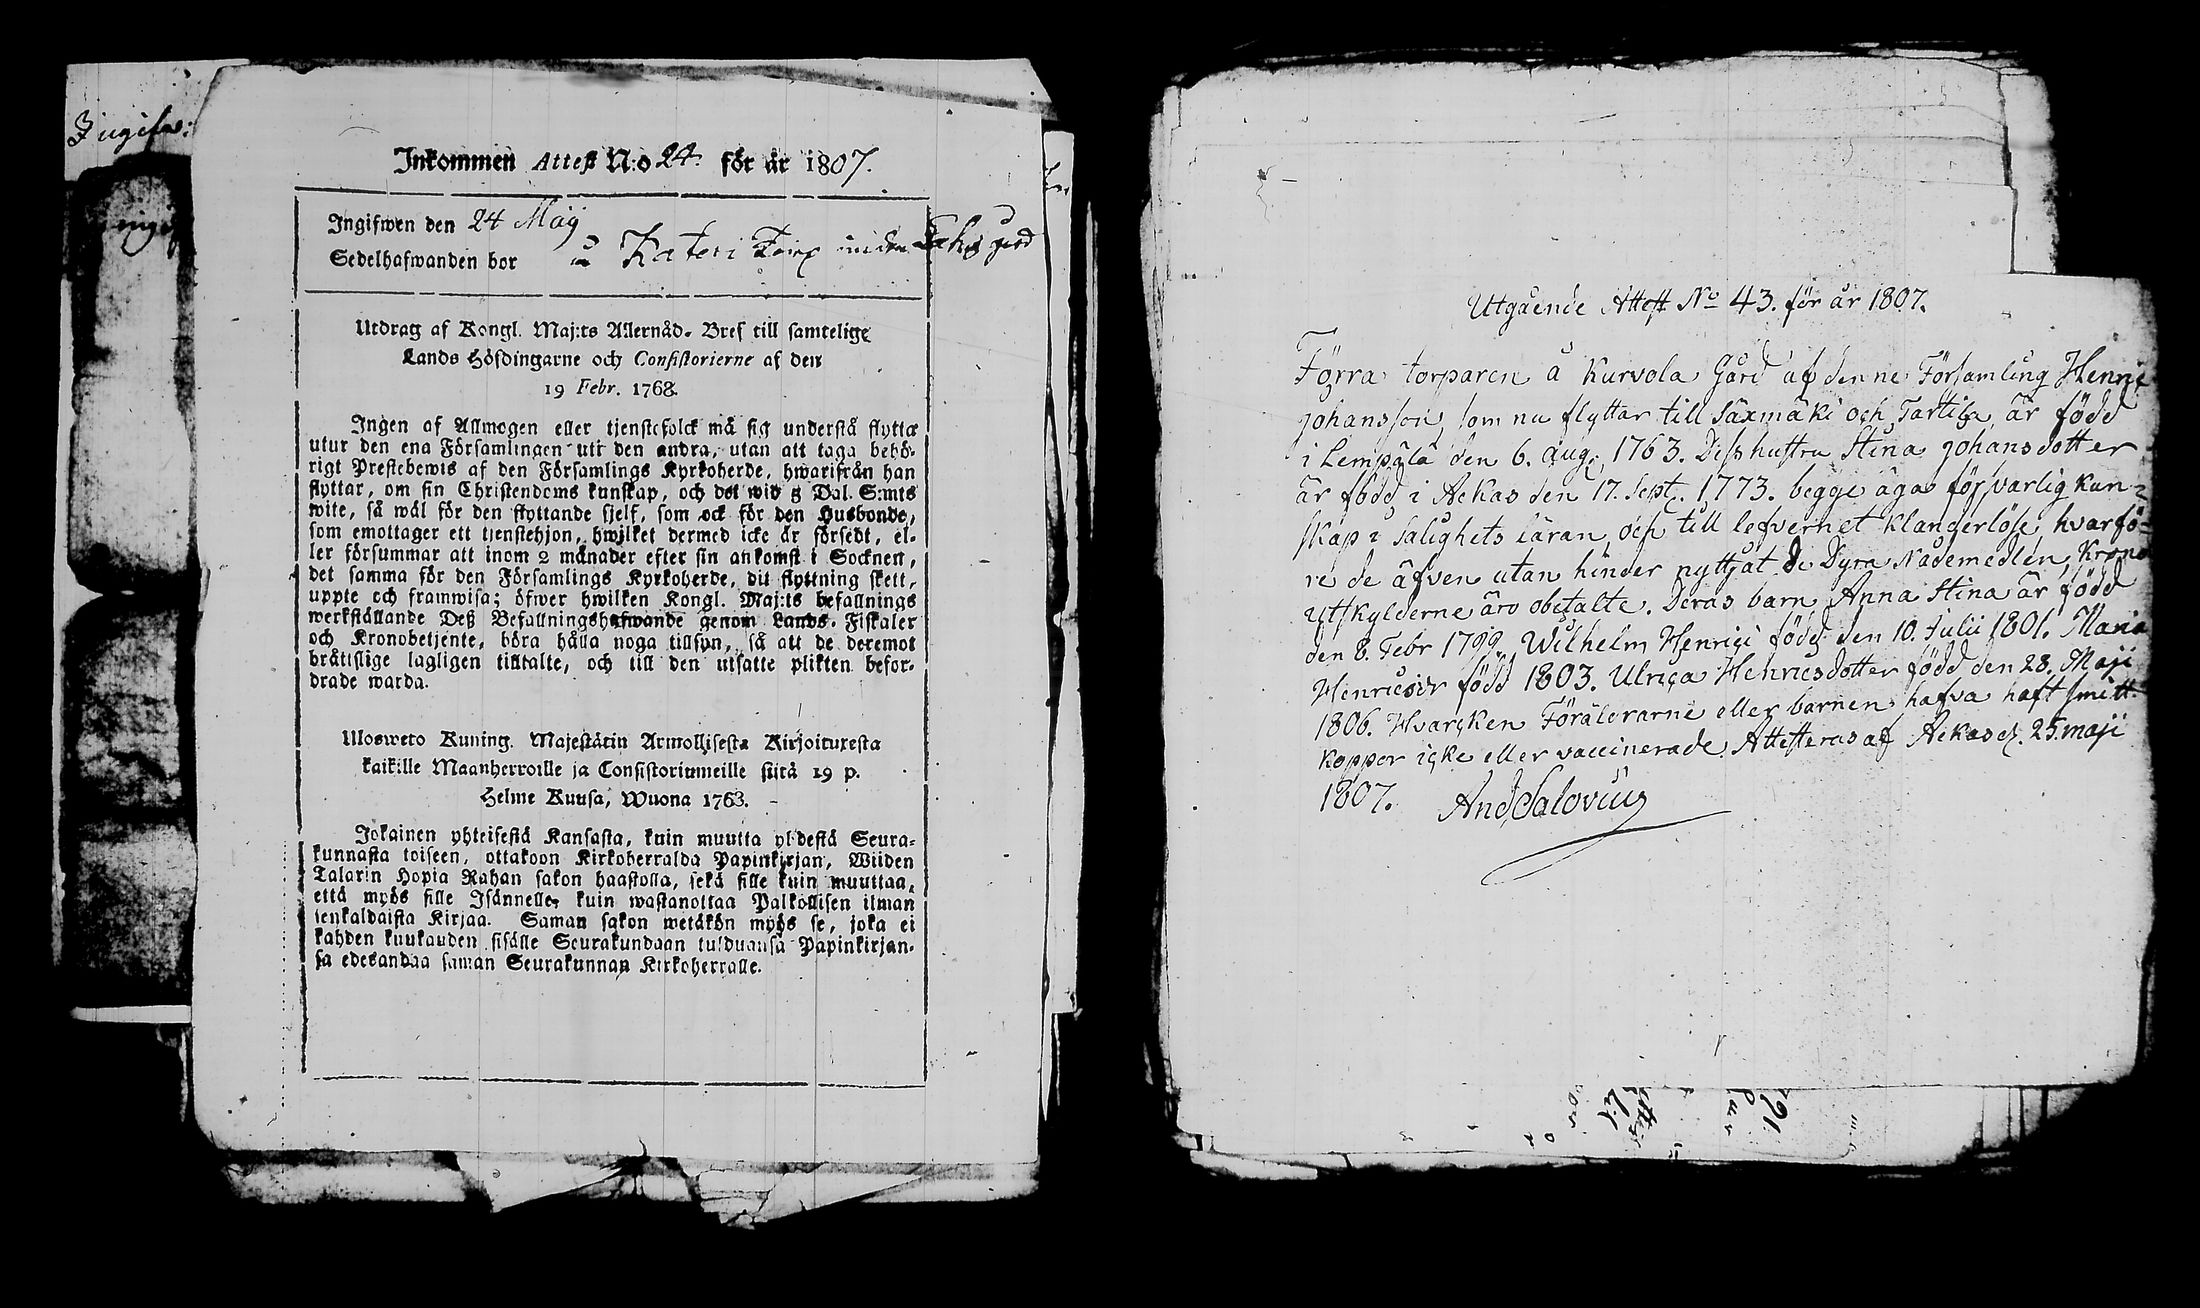 Inkommen Attest N:o 24. för år 1807.
Ingifwen den 24 Maÿ
Sedelhafwanden bor å Kateri Torp
Utdrag af Kongl. Maj:ts Allernåd. Bref till samtelige
Lands Höfdingarne och Consistorierne af den
19 Febr. 1768.
Ingen af Allmogen eller tjenstefolck må sig understå flytta
utur den ena Församlingen uti den andra, utan att taga behö-
rigt Prestebewis af den Församlings Kyrkoherde, hwarifrån han
flyttar, om sin Christendoms kunskap, och det wid 5 Dal. S:mts
wite, så wäl för den flyttande sjelf, som ock för den Husbonde,
som emottager ett tjenstehjon, hwilket dermed icke är försedt, el-
ler försummar att inom 2 månader efter sin ankomst i Socknen,
det samma för den Församlings Kyrkoherde, dit flyttning skett,
uppte och framwisa; öfwer hwilken Kongl. Maj:ts befallnings
werkställande Deß Befallningshafwande genom Lands-Fiskaler
och Kronobetjente, böra hålla noga tillsyn, så att de deremot
bråtislige lagligen tilltalte, och till den utsatte plikten befor-
drade warda.
Ulosweto Kuning. Majestätin Armollisesta Kirjoituxesta
kaikille Maanherroille ja Consistoriumeille siitä 19 p.
Helme Kuusa, Wuona 1763.
Jokainen yhteisestä Kansasta, kuin muutta yhdestä Seura-
kunnasta toiseen, ottakoon Kirkoherralda Papinkirjan, Wiiden
Talarin Hopia Rahan sakon haastolla, sekä sille kuin muuttaa,
että myös sille Isännelle, kuin wastanottaa Palkollisen ilman
senkaldaista Kirjaa. Saman sakon wetäkön myös se, joka ei
kahden kuukauden sisälle Seurakundaan tulduansa Papinkirjan-
sa edesandaa saman Seurakunnan Kirkoherralle.
Utgående Attest No 43. för år 1807.
Förra torparen å Kurvola Gård af denne Församling Henric
Johansson, som nu flyttar till Säxmäki och Tartila är född
i Lempälä den 6. Aug. 1763. Dess hustru Stina Johansdotter
är född i Ackas den 17. Sept. 1773. begge äga försvarlig kun-
skap i Salighets läran, och till lefvernet klanderlöse, hvarfö-
re de äfven utan hinder nyttjat de Dyra Nådemedlen, Krono
utskylderne äro obetalte. Deras barn Anna Stina är född
den 8. Febr 1799. Wilhelm Henrici född den 10. Julii 1801. Maria
Henricsdr född 1803. Ulrica Henricsdotter född den 28. Maji
1806. Hvarcken Föräldrarne eller barnen hafva haft smitt
koppor icke eller vaccinerade. Attesteras af Ackas d. 25. maji
1807. And Salovius